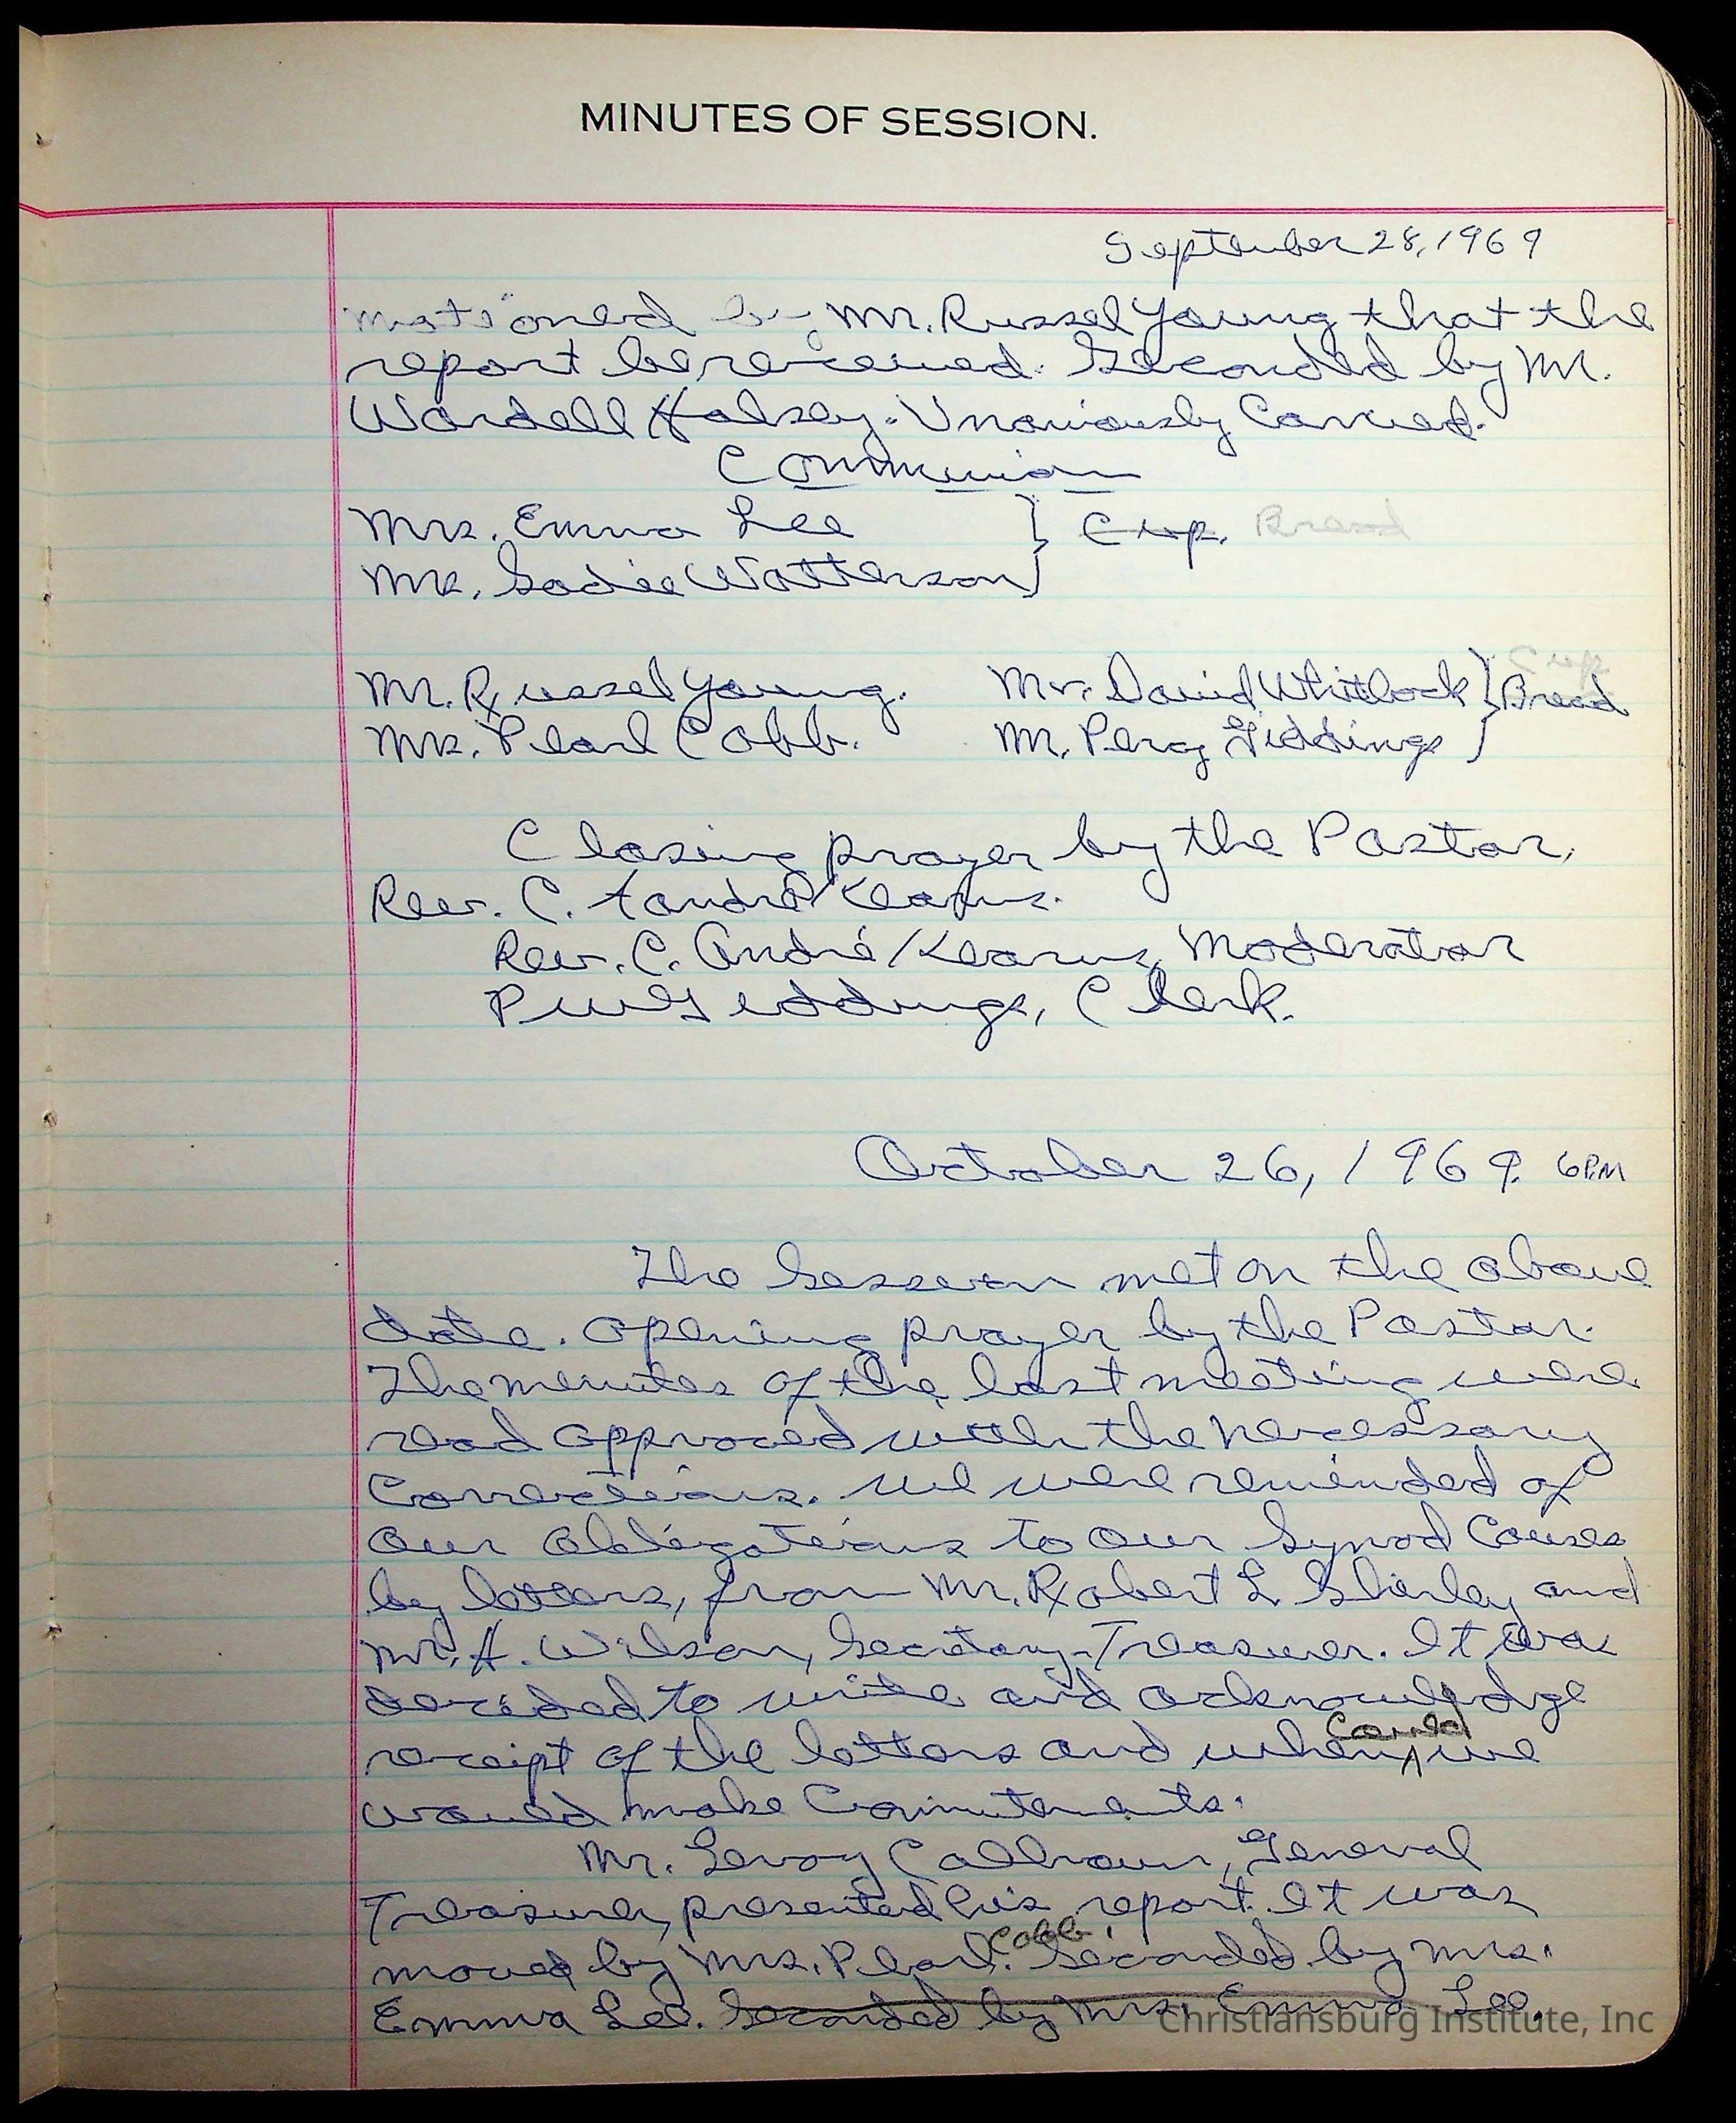 MINUTES OF SESSION.
September 28, 1969
Motioned by Mr. Russel Young that the
report be received. Seconded by Mr.
Wardell Halsey. Unaniously Carried.
Communion
Mrs. Emma Lee } Cup. Bread
Mrs. Sadie Watterson }
Cup
Mr. Russel Young. Mr. David Whitlock } Bread
Mrs. Pearl Cobb. Mr. Percy Giddings }
Closing prayer by the Pastor,
Rev. C. André Kearns.
Rev. C. André Kearns, Moderator
P W Giddings, Clerk.
October 26, 1969. 6PM
The Session met on the above
date. Opening prayer by the Pastor.
The minutes of the last meeting were
read approved with the necessary
Corrections. We were reminded of
our obligations to our Synod Causes
by letters, from Mr. Robert L Shirley and
Mr. A. Wilson, Secretary-Treasurer. It was
decided to write and acknowledge
receipt of the letters and when could we
would make Commitments.
Mr. Leroy Calhoun, General
Treasurer, presented his report. It was
moved by Mrs. Pearl Cobb. Seconded by Mrs.
Emma Lee. Seconded by Mrs. Emma Lee.
Christiansburg Institute, Inc